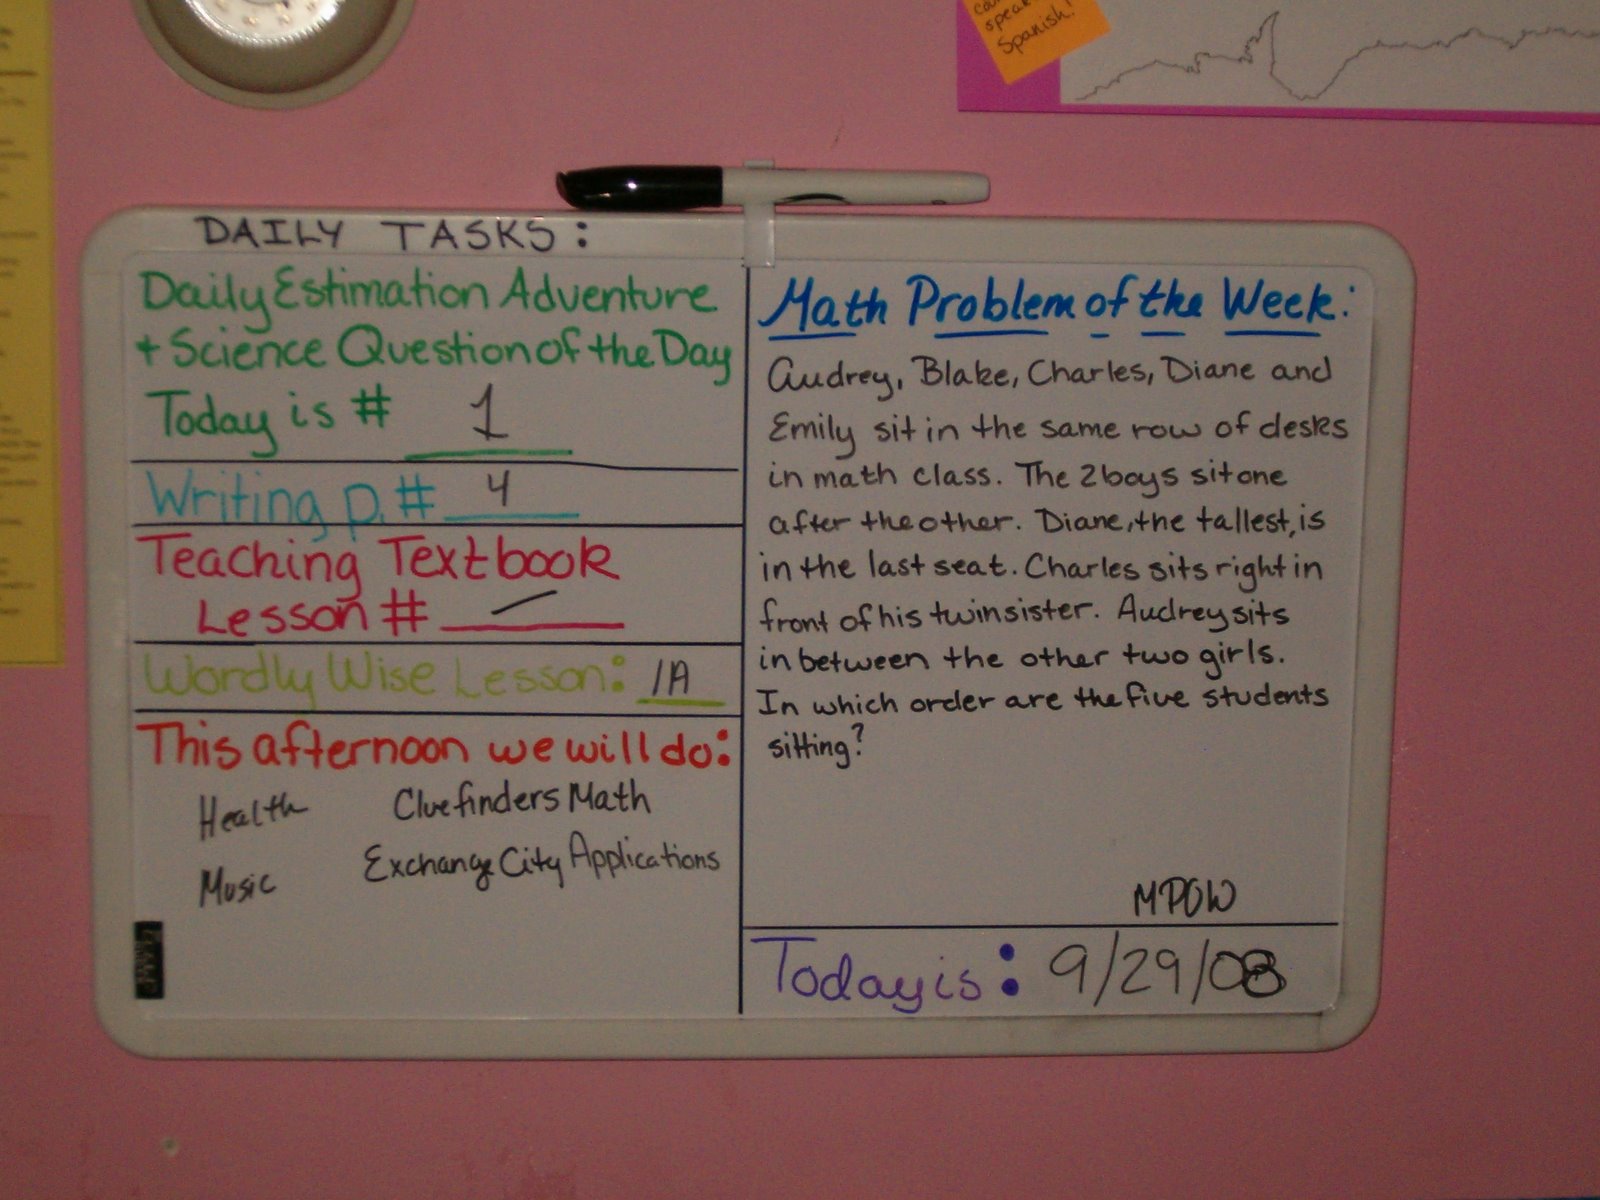 speak
Spanish!
DAILY TASKS:
Daily Estimation Adventure
+ Science Question of the Day
Today is # 1
Writing p. # 4
Teaching Textbook
Lesson # —
Wordly Wise Lesson: 1A
This afternoon we will do:
Health Cluefinders Math
Music Exchange City Applications
Math Problem of the Week:
Audrey, Blake, Charles, Diane and
Emily sit in the same row of desks
in math class. The 2 boys sit one
after the other. Diane, the tallest, is
in the last seat. Charles sits right in
front of his twin sister. Audrey sits
in between the other two girls.
In which order are the five students
sitting?
MPOW
Today is: 9/29/08